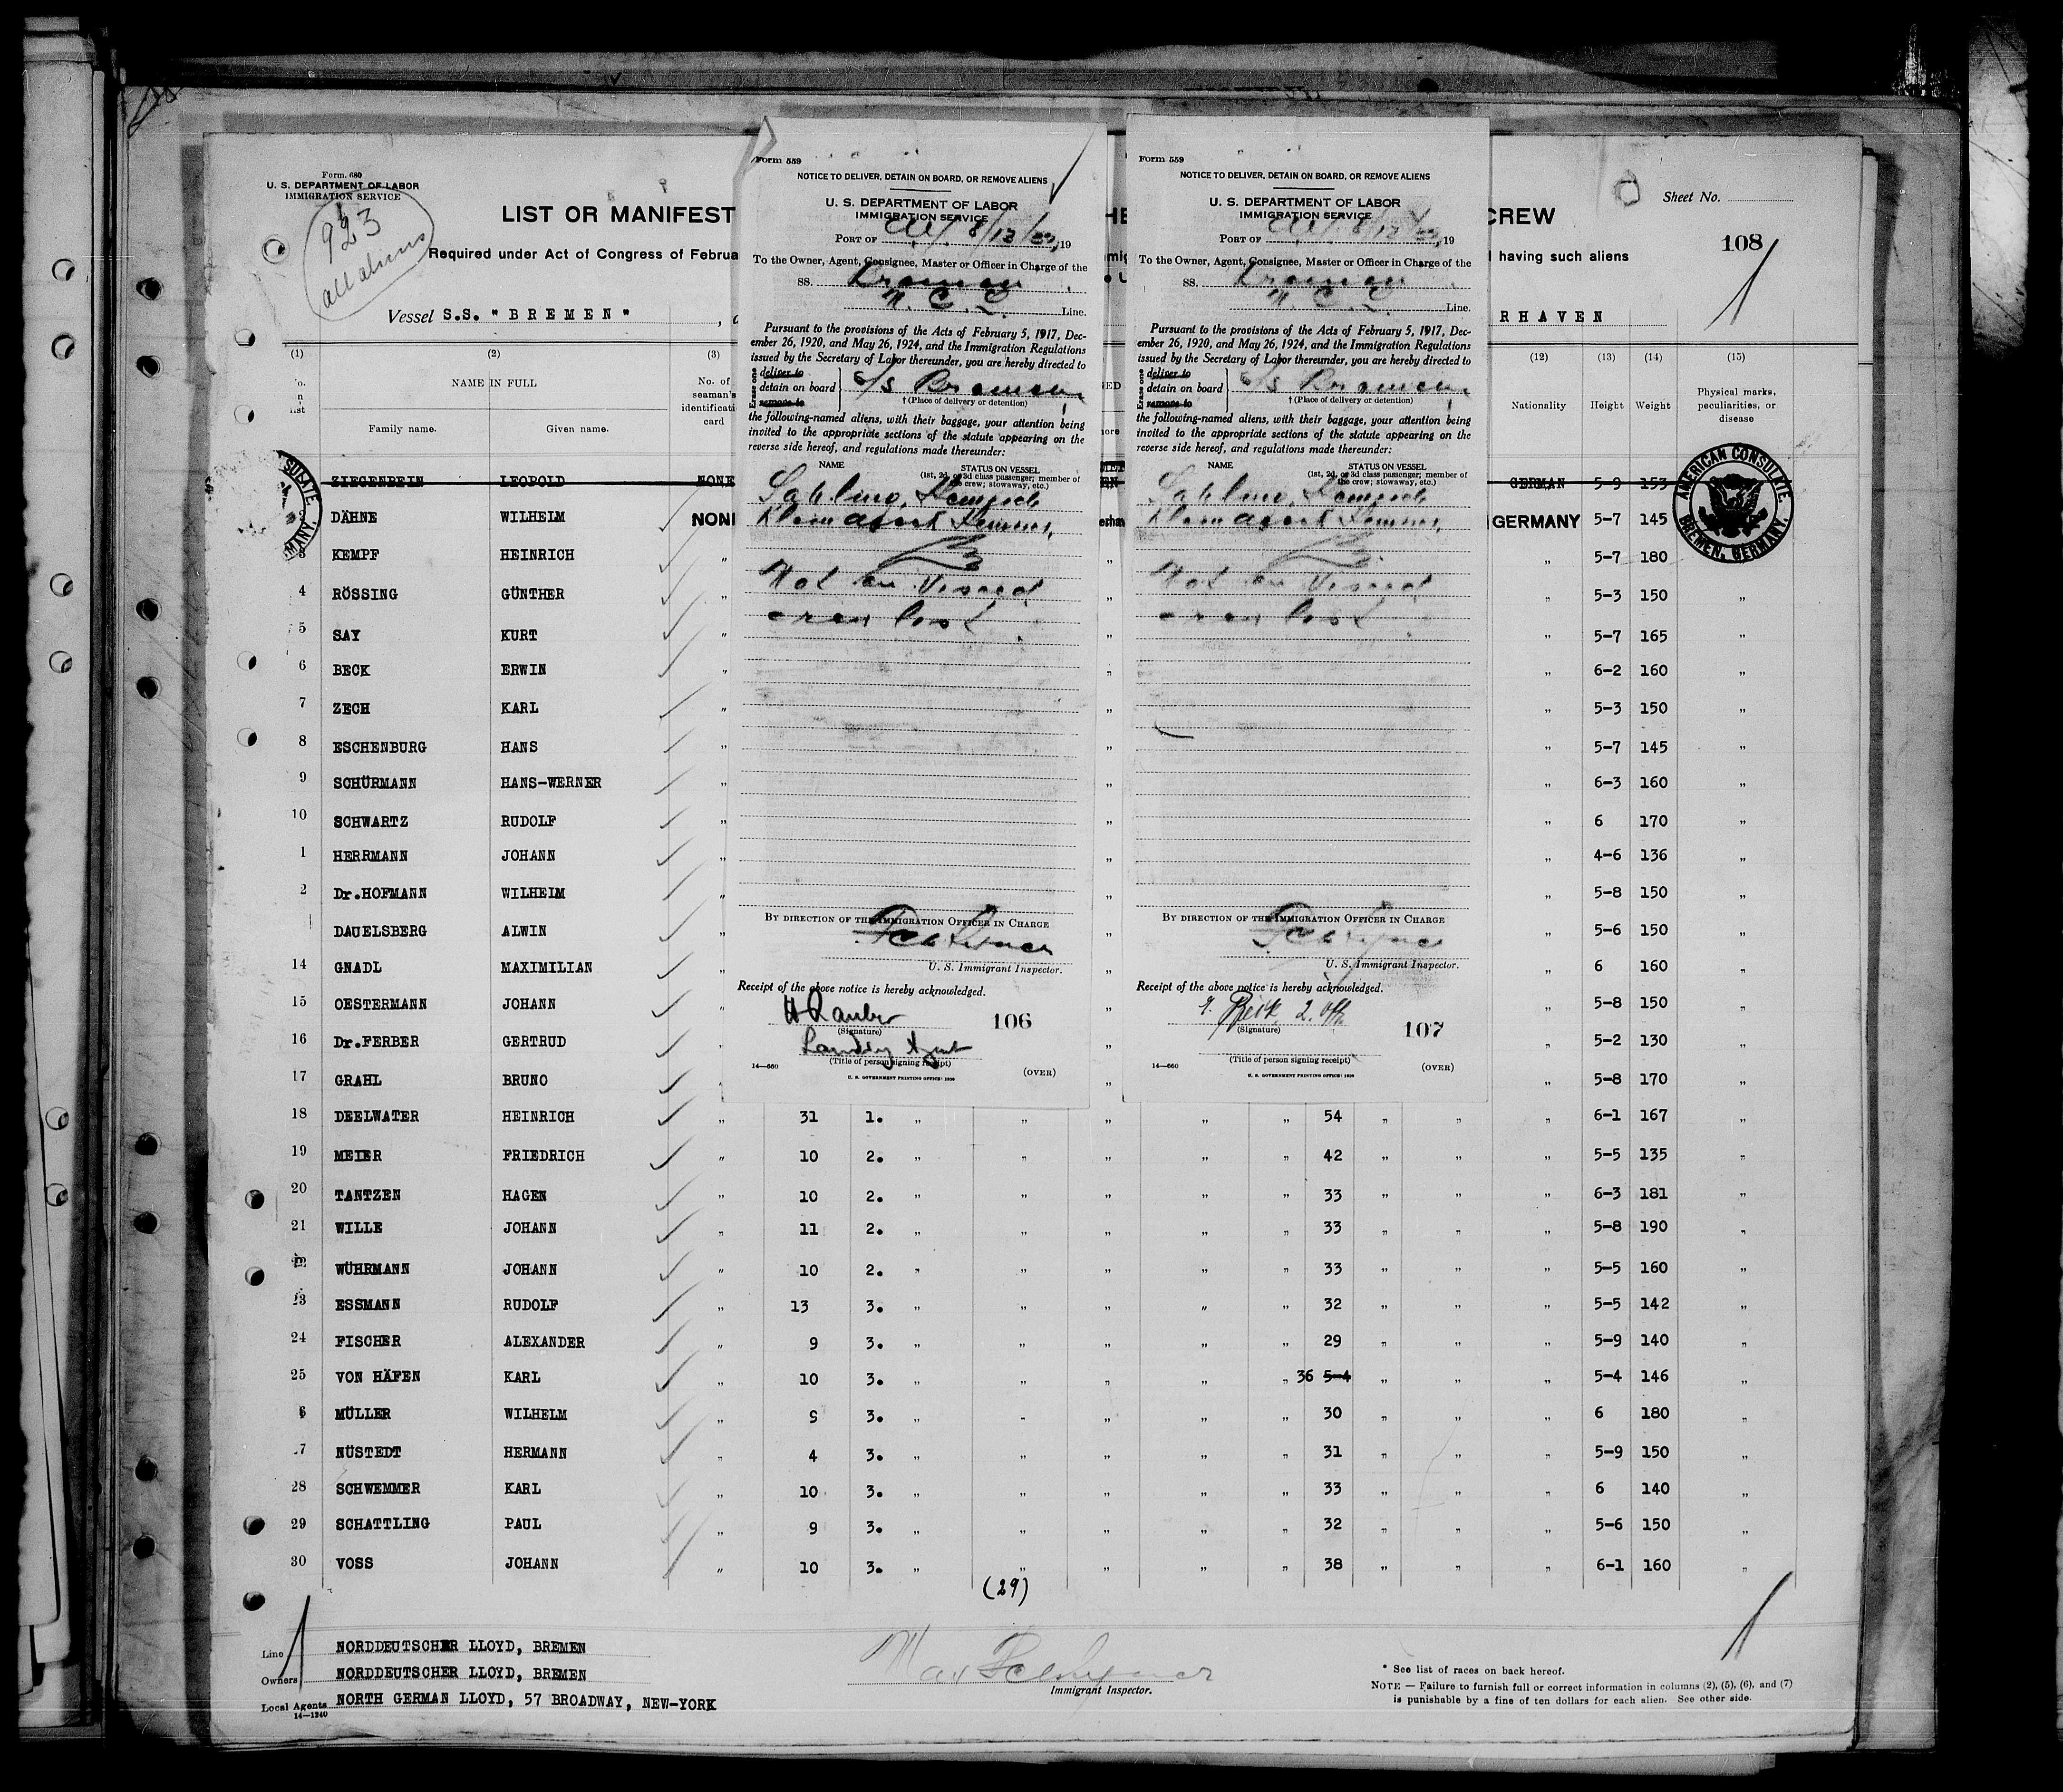 Form. 680
U. S. DEPARTMENT OF LABOR
IMMIGRATION SERVICE
923
all aliens
LIST OR MANIFEST
CREW
Sheet No.
108
Required under Act of Congress of Februa
having such aliens
Vessel S.S. "BREMEN"
RHAVEN
(1) (2) (3) (12) (13) (14) (15)
NAME IN FULL
Family name. Given name.
No. of seaman's identificati card
Nationality Height Weight Physical marks, peculiarities, or disease
ZIEGENBEIN LEOPOLD NONE GERMAN 5-9 153
DÄHNE WILHELM NON GERMANY 5-7 145
3 KEMPF HEINRICH " " 5-7 180
4 RÖSSING GÜNTHER " " 5-3 150 "
5 SAY KURT " " 5-7 165 "
6 BECK ERWIN " " 6-2 160 "
7 ZECH KARL " " 5-3 150 "
8 ESCHENBURG HANS " " 5-7 145 "
9 SCHÜRMANN HANS-WERNER " " 6-3 160 "
10 SCHWARTZ RUDOLF " " 6 170 "
1 HERRMANN JOHANN " " 4-6 136 "
2 Dr.HOFMANN WILHELM " " 5-8 150 "
DAUELSBERG ALWIN " " 5-6 150 "
14 GNADL MAXIMILIAN " " 6 160 "
15 OESTERMANN JOHANN " " 5-8 150 "
16 Dr.FERBER GERTRUD " " 5-2 130 "
17 GRAHL BRUNO " " 5-8 170 "
18 DEELWATER HEINRICH " 31 1. " " " " " 54 " " " 6-1 167 "
19 MEIER FRIEDRICH " 10 2. " " " " " 42 " " " 5-5 135 "
20 TANTZEN HAGEN " 10 2. " " " " " 33 " " " 6-3 181 "
21 WILLE JOHANN " 11 2. " " " " " 33 " " " 5-8 190 "
WÜHRMANN JOHANN " 10 2. " " " " " 33 " " " 5-5 160 "
23 ESSMANN RUDOLF " 13 3. " " " " " 32 " " " 5-5 142 "
24 FISCHER ALEXANDER " 9 3. " " " " " 29 " " " 5-9 140 "
25 VON HÄFEN KARL " 10 3. " " " " " 36 5-4 " " " 5-4 146 "
6 MÜLLER WILHELM " 9 3. " " " " " 30 " " " 6 180 "
7 NÜSTEDT HERMANN " 4 3. " " " " " 31 " " " 5-9 150 "
28 SCHWEMMER KARL " 10 3. " " " " " 33 " " " 6 140 "
29 SCHATTLING PAUL " 9 3. " " " " " 32 " " " 5-6 150 "
30 VOSS JOHANN " 10 3. " " " " " 38 " " " 6-1 160 "
(29)
Line NORDDEUTSCHER LLOYD, BREMEN
Owners NORDDEUTSCHER LLOYD, BREMEN
Local Agents NORTH GERMAN LLOYD, 57 BROADWAY, NEW-YORK
14—1240
Max
Immigrant Inspector.
* See list of races on back hereof.
NOTE — Failure to furnish full or correct information in columns (2), (5), (6), and (7)
is punishable by a fine of ten dollars for each alien. See other side.
AMERICAN CONSULATE
BREMEN, GERMANY.
Form 559
NOTICE TO DELIVER, DETAIN ON BOARD, OR REMOVE ALIENS
U. S. DEPARTMENT OF LABOR
IMMIGRATION SERVICE
PORT OF , 19
To the Owner, Agent, Consignee, Master or Officer in Charge of the
SS. Bremen
N. G. L. Line.
Pursuant to the provisions of the Acts of February 5, 1917, Dec-
ember 26, 1920, and May 26, 1924, and the Immigration Regulations
issued by the Secretary of Labor thereunder, you are hereby directed to
Erase one
deliver to
detain on board
remove to
S/S Bremen
† (Place of delivery or detention)
the following-named aliens, with their baggage, your attention being
invited to the appropriate sections of the statute appearing on the
reverse side hereof, and regulations made thereunder:
NAME STATUS ON VESSEL
(1st, 2d, or 3d class passenger; member of
the crew; stowaway, etc.)
Not on Vessel
crew list
BY DIRECTION OF THE IMMIGRATION OFFICER IN CHARGE
U. S. Immigrant Inspector.
Receipt of the above notice is hereby acknowledged.
(Signature)
106
Landing Agent
(Title of person signing receipt)
14—660
U. S. GOVERNMENT PRINTING OFFICE: 1930
(OVER)
Form 559
NOTICE TO DELIVER, DETAIN ON BOARD, OR REMOVE ALIENS
U. S. DEPARTMENT OF LABOR
IMMIGRATION SERVICE
PORT OF , 19
To the Owner, Agent, Consignee, Master or Officer in Charge of the
SS. Bremen
N. G. L. Line.
Pursuant to the provisions of the Acts of February 5, 1917, Dec-
ember 26, 1920, and May 26, 1924, and the Immigration Regulations
issued by the Secretary of Labor thereunder, you are hereby directed to
Erase one
deliver to
detain on board
remove to
S/S Bremen
† (Place of delivery or detention)
the following-named aliens, with their baggage, your attention being
invited to the appropriate sections of the statute appearing on the
reverse side hereof, and regulations made thereunder:
NAME STATUS ON VESSEL
(1st, 2d, or 3d class passenger; member of
the crew; stowaway, etc.)
Not on Vessel
crew list
BY DIRECTION OF THE IMMIGRATION OFFICER IN CHARGE
U. S. Immigrant Inspector.
Receipt of the above notice is hereby acknowledged.
(Signature)
107
(Title of person signing receipt)
14—660
U. S. GOVERNMENT PRINTING OFFICE: 1930
(OVER)